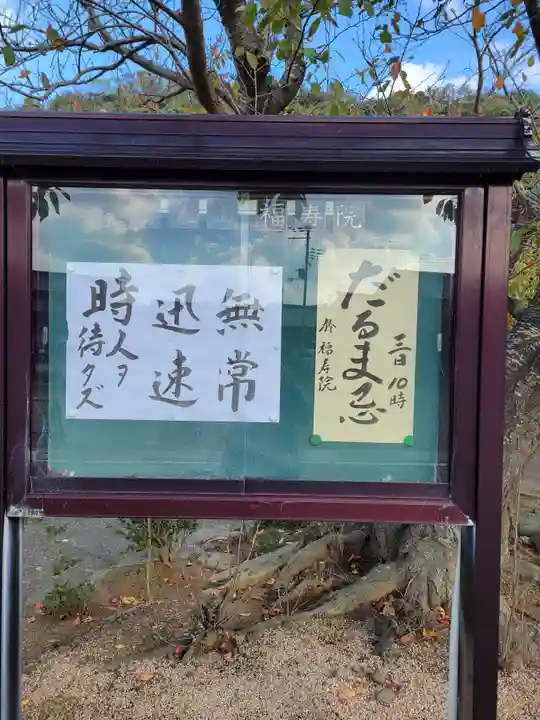 福寿院
だるま忌
三日 10時
於 福寿院
無常
迅速
時人ヲ
待タズ